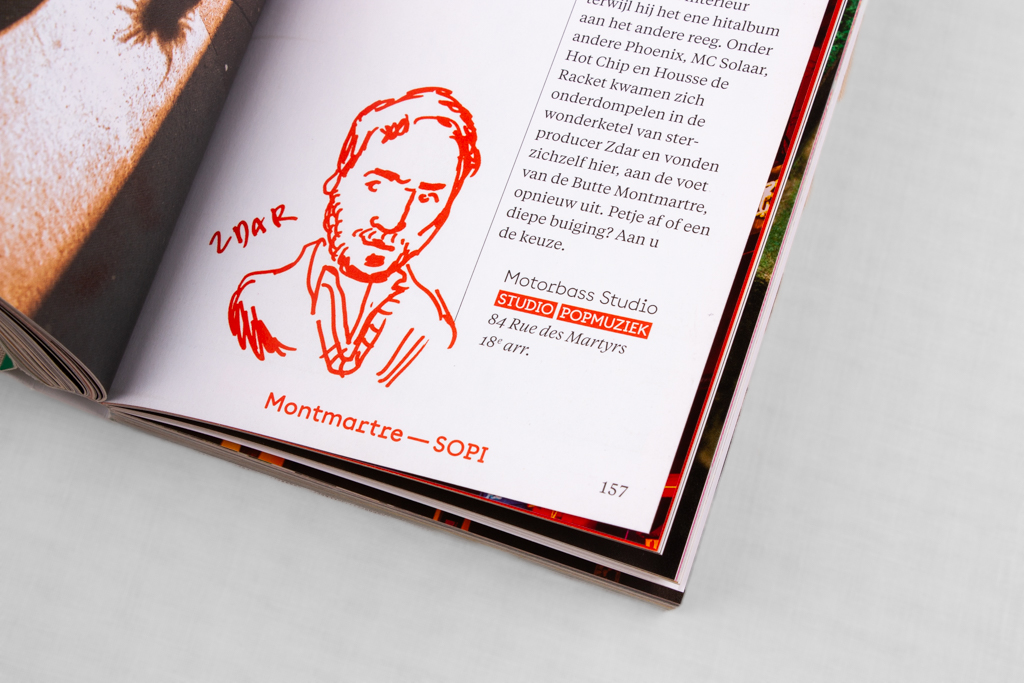 terwijl hij het ene hitalbum
aan het andere reeg. Onder
andere Phoenix, MC Solaar,
Hot Chip en Housse de
Racket kwamen zich
onderdompelen in de
wonderketel van ster-
producer Zdar en vonden
zichzelf hier, aan de voet
van de Butte Montmartre,
opnieuw uit. Petje af of een
diepe buiging? Aan u
de keuze.
Motorbass Studio
STUDIO POPMUZIEK
84 Rue des Martyrs
18e arr.
ZDAR
Montmartre — SOPI
157